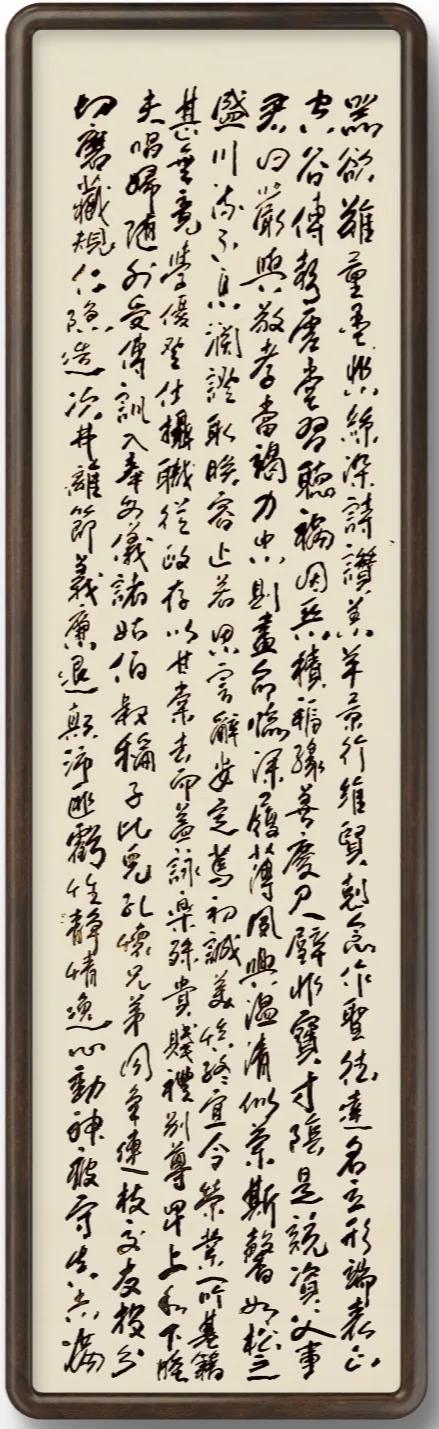 器欲難量墨悲絲染詩讚羔羊景行維賢剋念作聖德建名立形端表正
空谷傳聲虛堂習聽禍因惡積福緣善慶尺璧非寶寸陰是競資父事
君曰嚴與敬孝當竭力忠則盡命臨深履薄夙興溫凊似蘭斯馨如松之
盛川流不息淵澄取映容止若思言辭安定篤初誠美慎終宜令榮業所基籍
甚無竟學優登仕攝職從政存以甘棠去而益詠樂殊貴賤禮別尊卑上和下睦
夫唱婦隨外受傅訓入奉母儀諸姑伯叔猶子比兒孔懷兄弟同氣連枝交友投分
切磨箴規仁隱造次弗離節義廉退顛沛匪虧性靜情逸心動神疲守真志滿